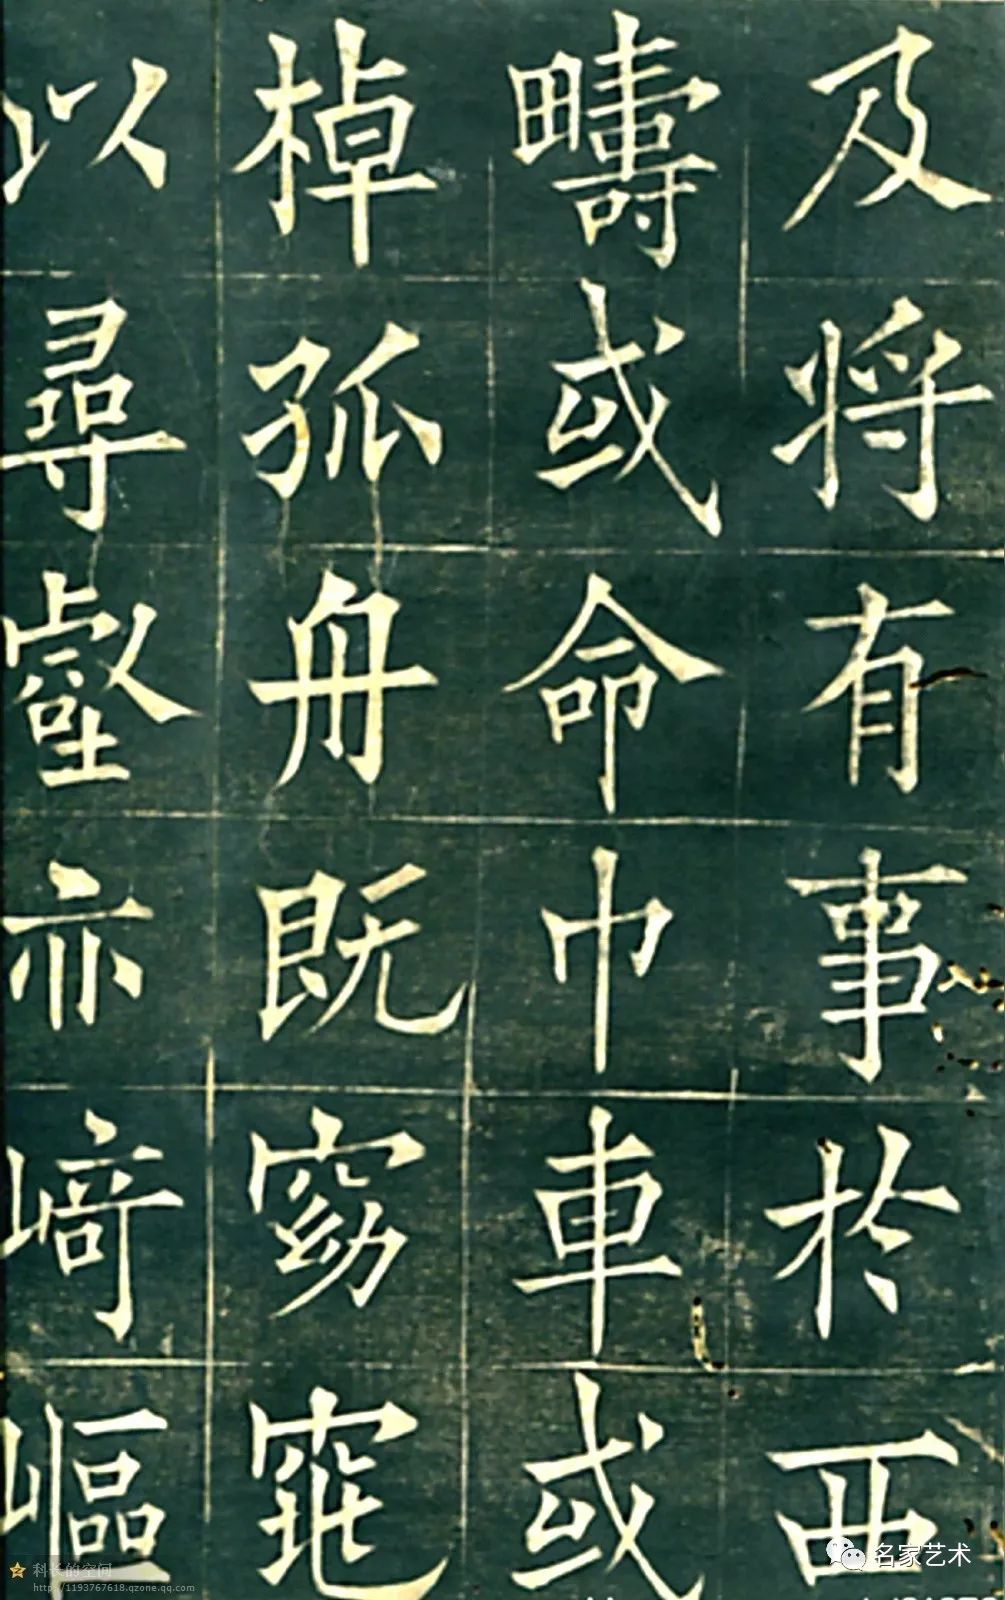 及将有事於西
疇或命巾車或
棹孤舟既窈窕
以尋壑亦崎嶇
科长的空间
http://1193767618.qzone.qq.com
名家艺术